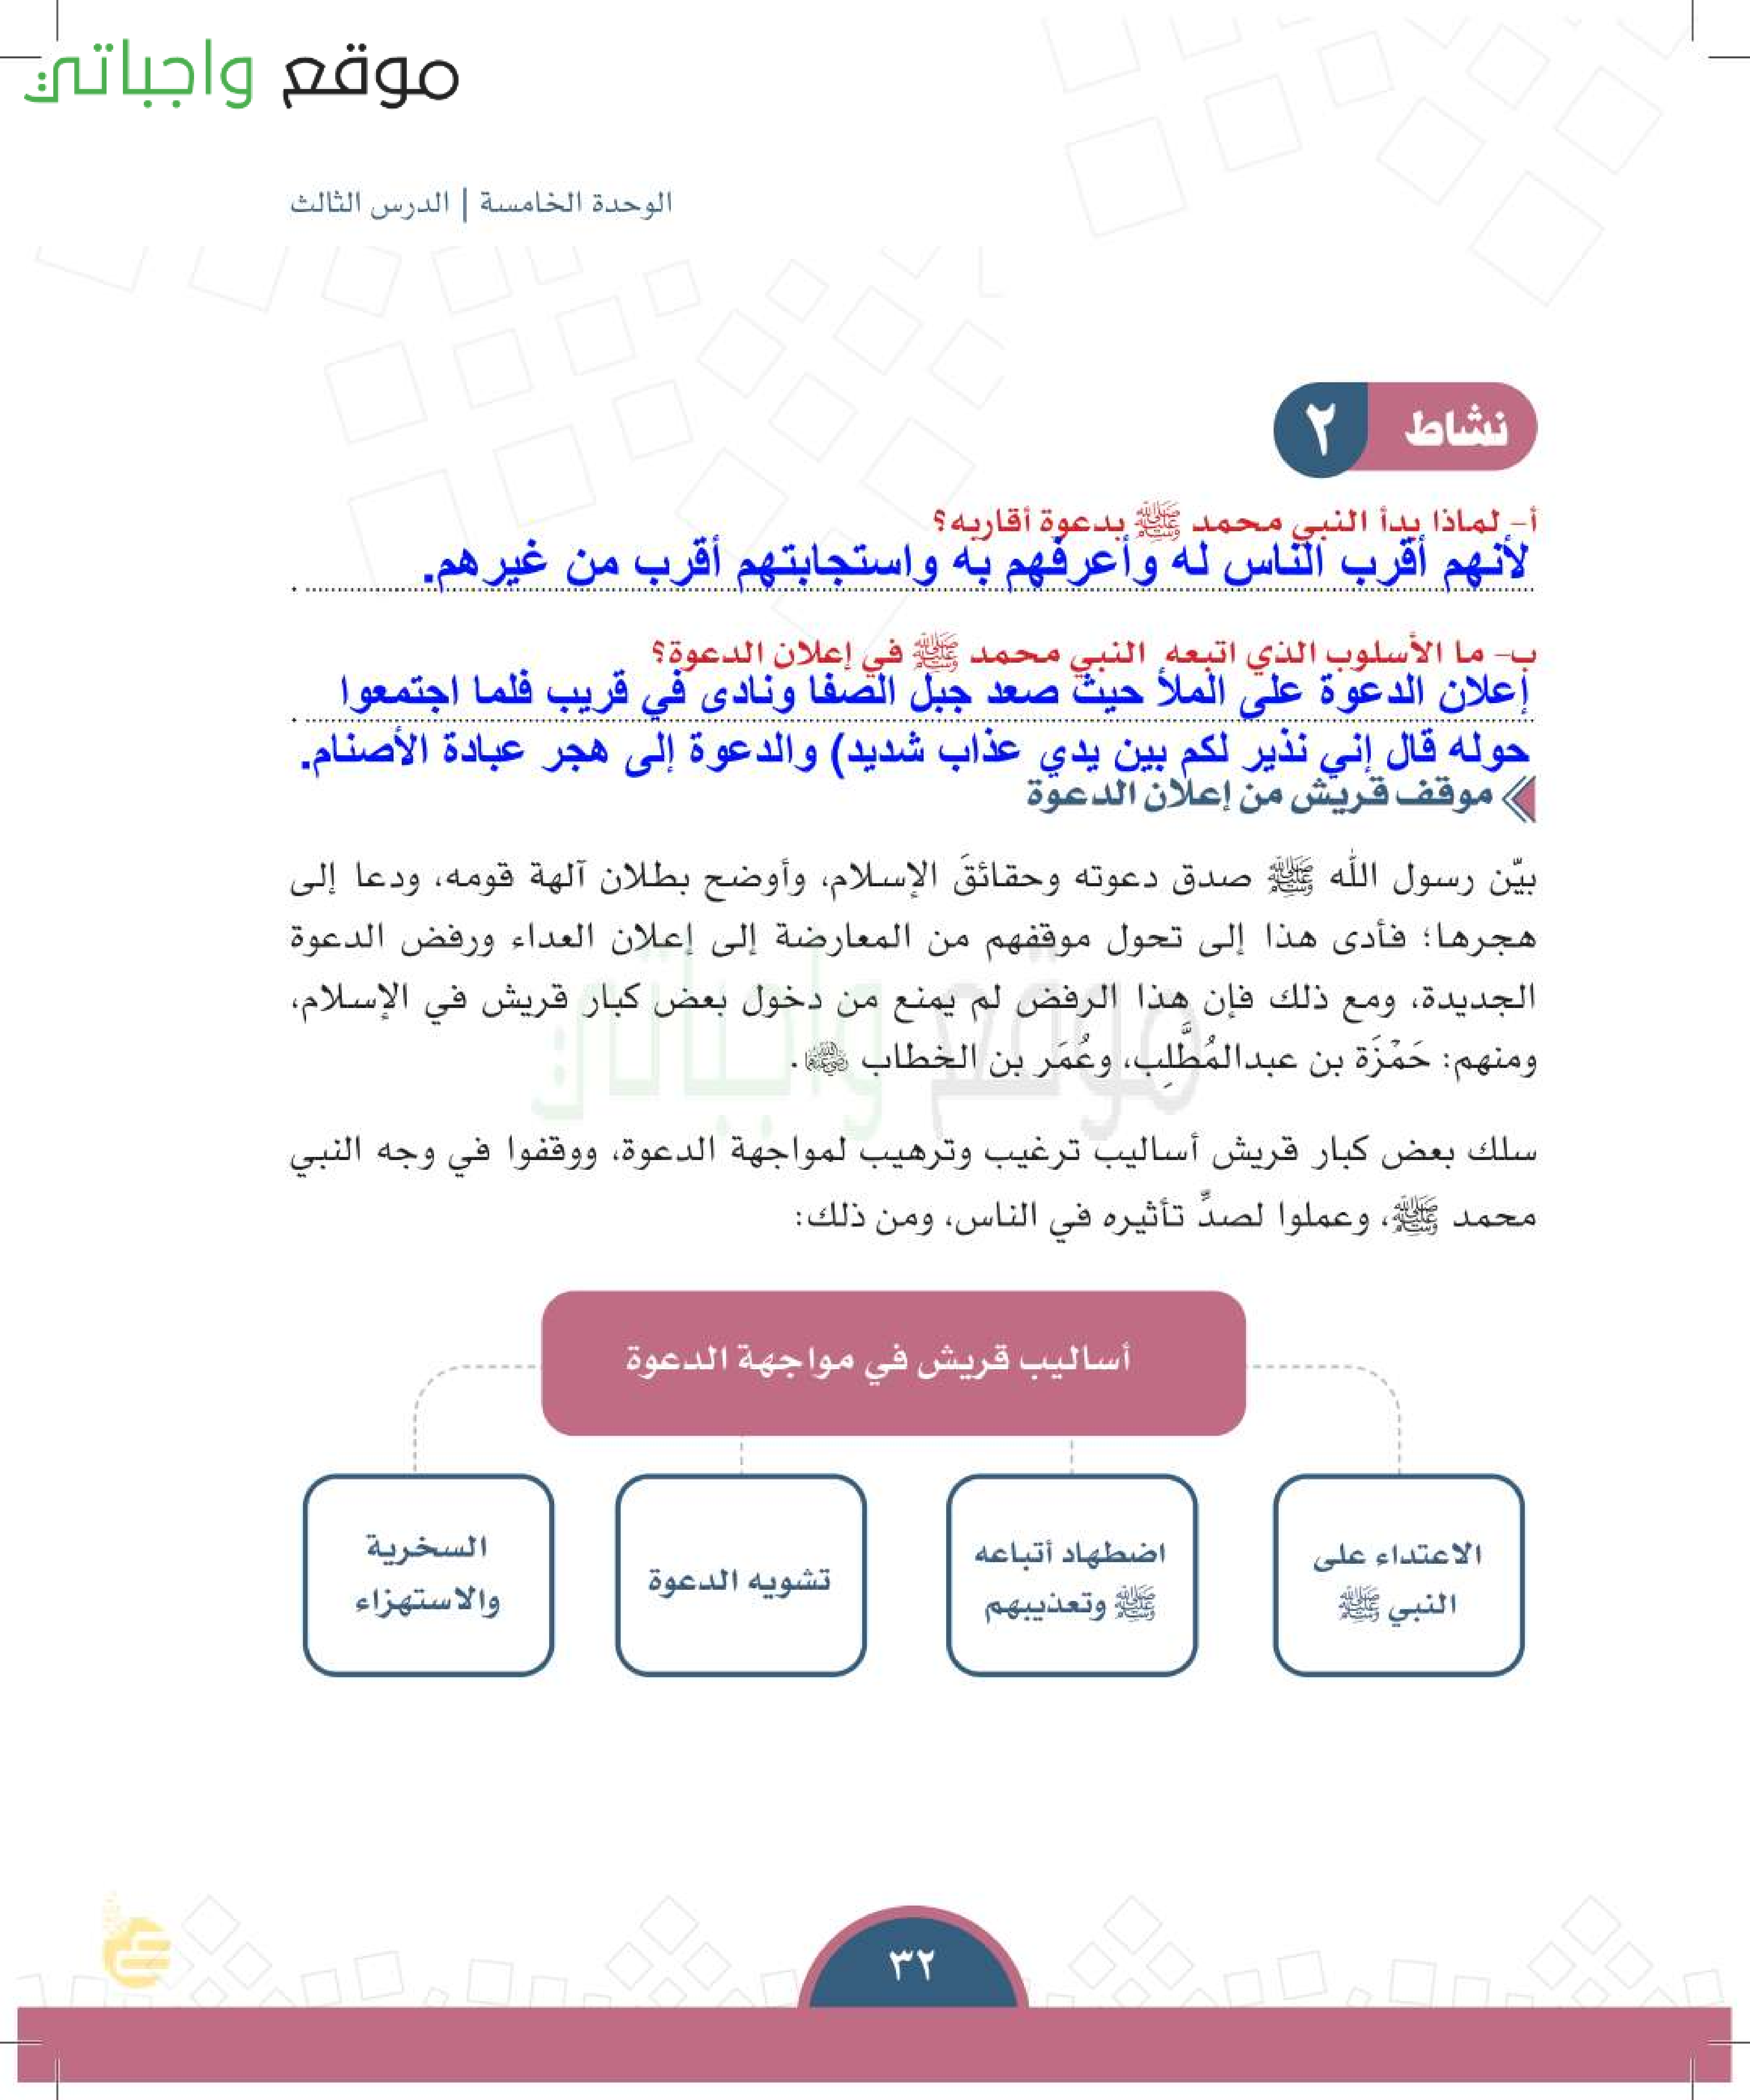 موقع واجباتي
الوحدة الخامسة | الدرس الثالث
نشاط ٢
أ- لماذا بدأ النبي محمد ﷺ بدعوة أقاربه؟
لأنهم أقرب الناس له وأعرفهم به واستجابتهم أقرب من غيرهم.
ب- ما الأسلوب الذي اتبعه النبي محمد ﷺ في إعلان الدعوة؟
إعلان الدعوة على الملأ حيث صعد جبل الصفا ونادى في قريب فلما اجتمعوا
حوله قال إني نذير لكم بين يدي عذاب شديد) والدعوة إلى هجر عبادة الأصنام.
موقف قريش من إعلان الدعوة
بيّن رسول الله ﷺ صدق دعوته وحقائقَ الإسلام، وأوضح بطلان آلهة قومه، ودعا إلى
هجرها؛ فأدى هذا إلى تحول موقفهم من المعارضة إلى إعلان العداء ورفض الدعوة
الجديدة، ومع ذلك فإن هذا الرفض لم يمنع من دخول بعض كبار قريش في الإسلام،
ومنهم: حَمْزَة بن عبدالمُطَّلِب، وعُمَر بن الخطاب رضي الله عنهما.
سلك بعض كبار قريش أساليب ترغيب وترهيب لمواجهة الدعوة، ووقفوا في وجه النبي
محمد ﷺ، وعملوا لصدِّ تأثيره في الناس، ومن ذلك:
أساليب قريش في مواجهة الدعوة
الاعتداء على
النبي ﷺ
اضطهاد أتباعه
ﷺ وتعذيبهم
تشويه الدعوة
السخرية
والاستهزاء
موقع واجباتي
٣٢